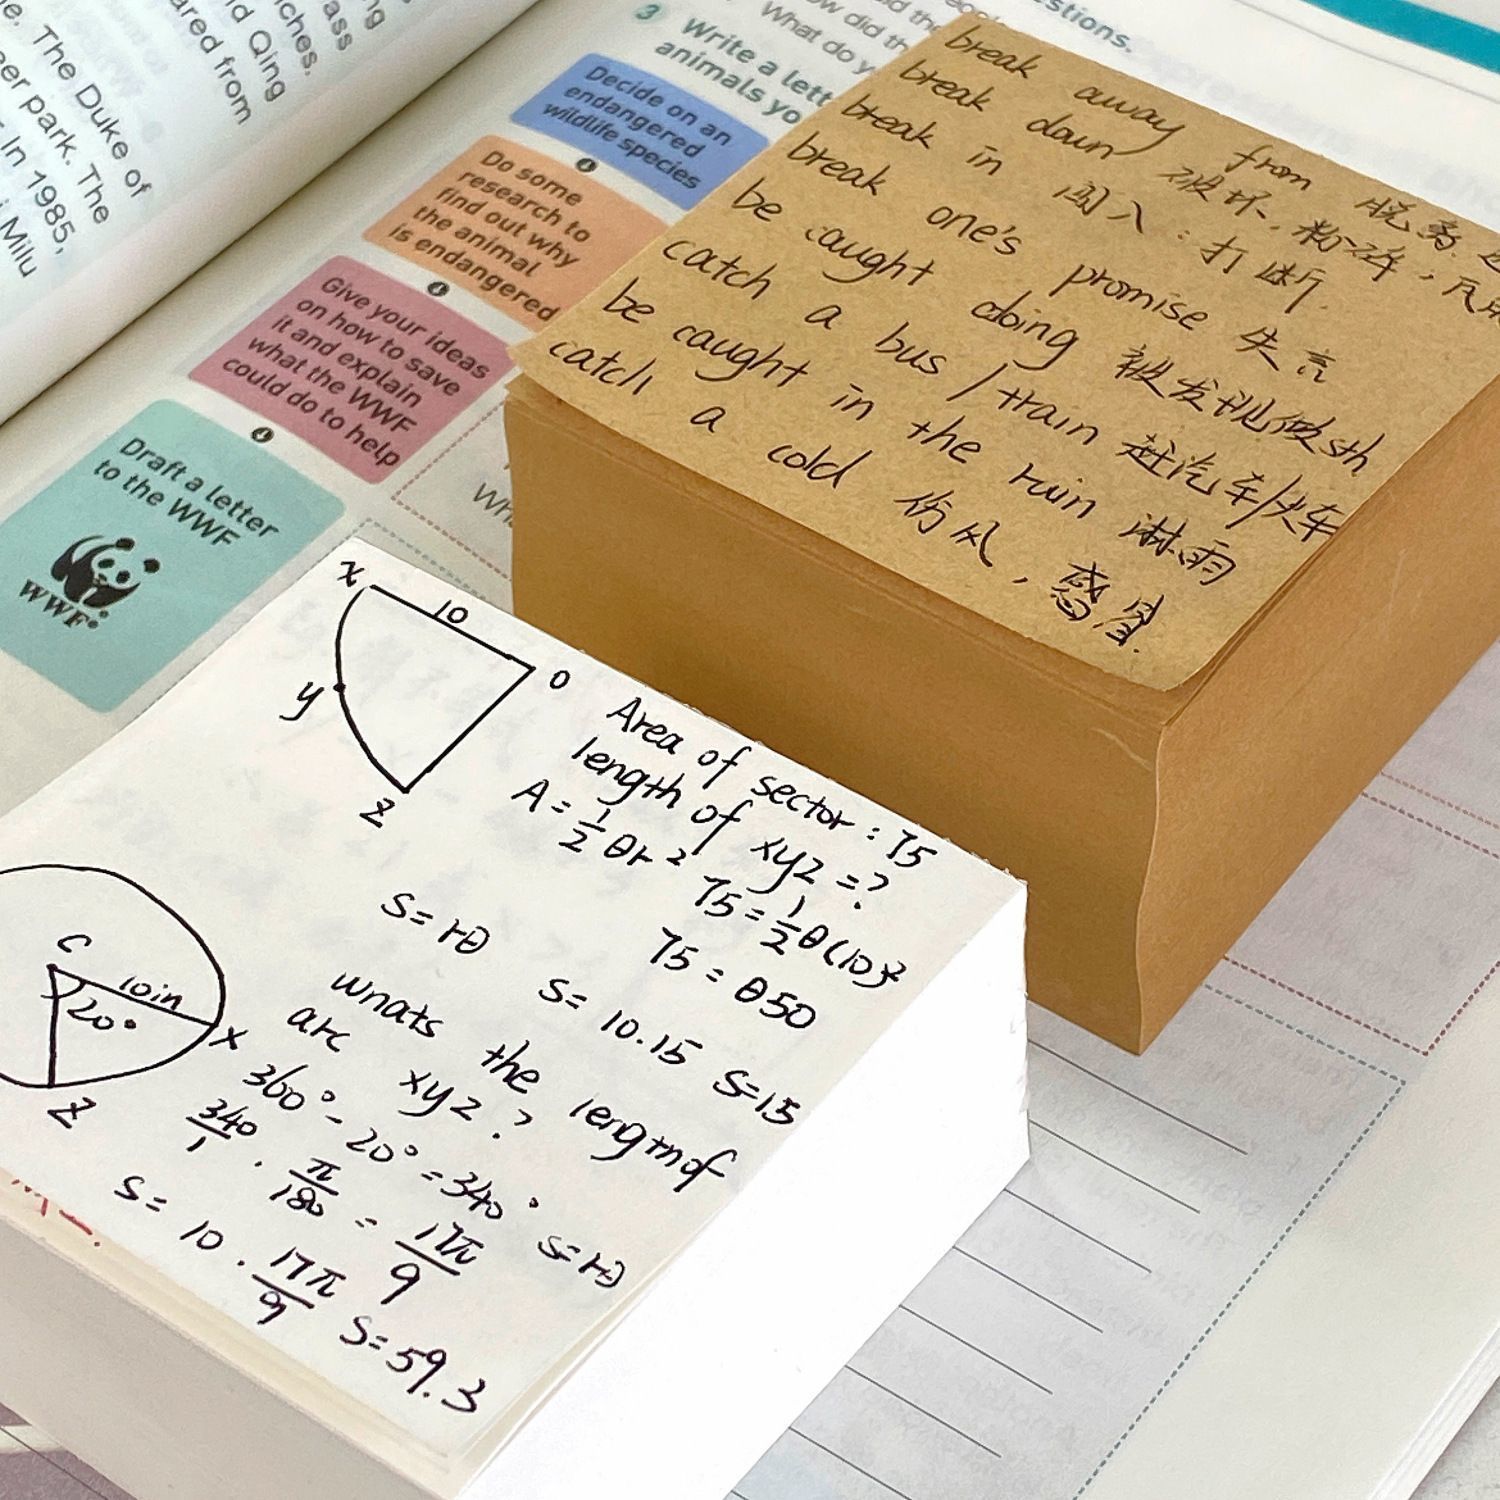 The Duke of
deer park. The
In 1985,
Milu
nd Qing
ared from
estions.
What do y
3 Write a lett
animals yo
Decide on an
endangered
wildlife species
Do some
research to
find out why
the animal
is endangered
Give your ideas
on how to save
it and explain
what the WWF
could do to help
Draft a letter
to the WWF
WWF
break away from 脱离
break down 破坏、粉碎,瓦
break in 闯入;打断
break one's promise 失言
be caught doing 被发现做sth
catch a bus / train 赶汽车/火车
be caught in the rain 淋雨
catch a cold 伤风,感冒.
x 10 O
y
z
Area of sector: 75
length of xyz=?
A=1/2 θr²
75=1/2θ(10)²
75=θ50
s=rθ s=10.15 s=15
C
10in
20°
x
z
whats the length of
arc xyz?
360°-20°=340° s=rθ
340/1 · π/180 = 17π/9
s=10 · 17π/9 s=59.3